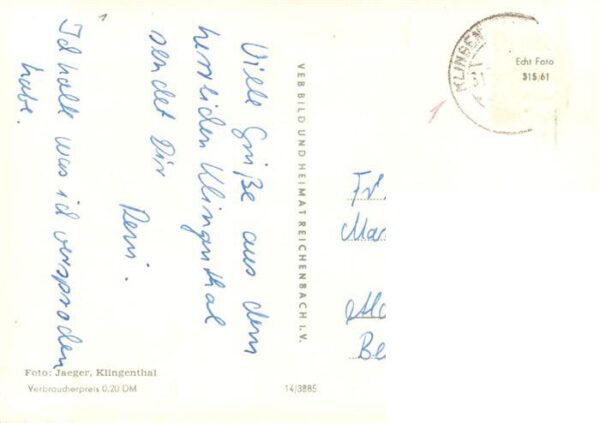 Viele Grüße aus dem
herrlichen Klingenthal
sendet Dir
Ich halte was ich versprochen
habe.
VEB BILD UND HEIMAT REICHENBACH I.V.
Echt Foto
315/61
Fr.
Mar
Be
Foto: Jaeger, Klingenthal
Verbraucherpreis 0,20 DM
14/3885